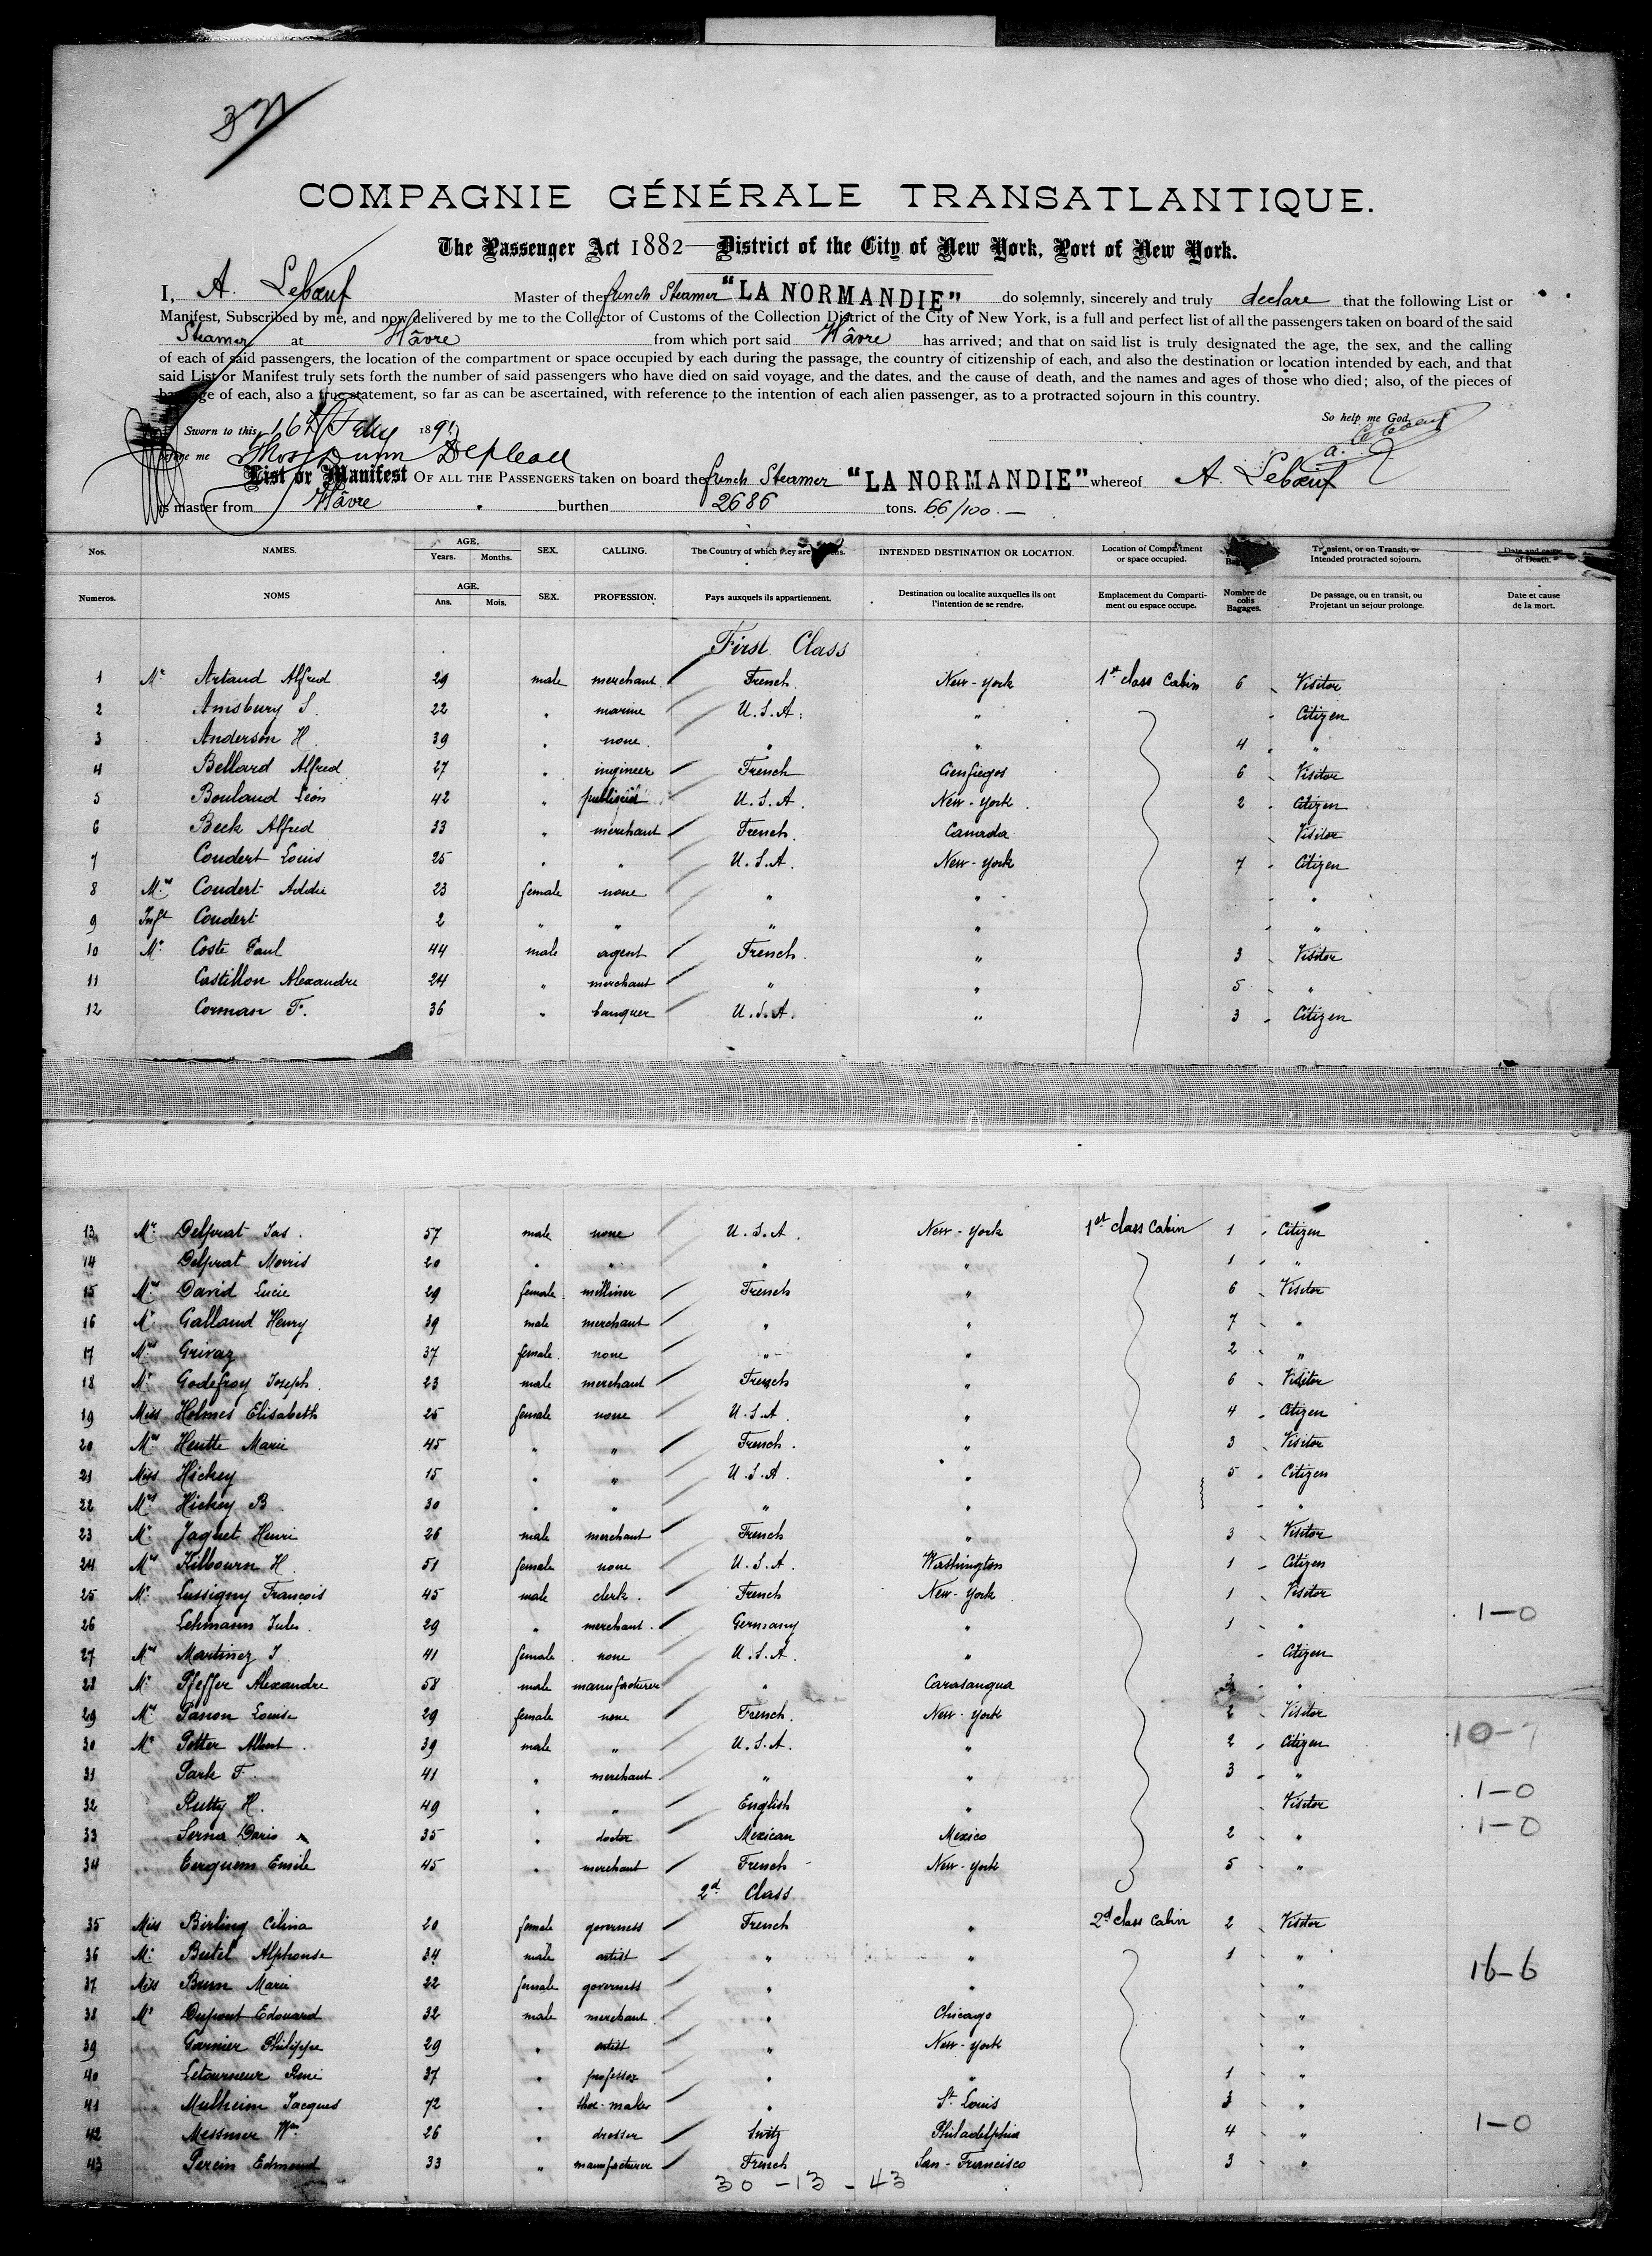 COMPAGNIE GÉNÉRALE TRANSATLANTIQUE.
The Passenger Act 1882—District of the City of New York, Port of New York.
I, A. Lebœuf Master of the french Steamer "LA NORMANDIE" do solemnly, sincerely and truly declare that the following List or
Manifest, Subscribed by me, and now delivered by me to the Collector of Customs of the Collection District of the City of New York, is a full and perfect list of all the passengers taken on board of the said
Steamer at Hâvre from which port said Hâvre has arrived; and that on said list is truly designated the age, the sex, and the calling
of each of said passengers, the location of the compartment or space occupied by each during the passage, the country of citizenship of each, and also the destination or location intended by each, and that
said List or Manifest truly sets forth the number of said passengers who have died on said voyage, and the dates, and the cause of death, and the names and ages of those who died; also, of the pieces of
baggage of each, also a true statement, so far as can be ascertained, with reference to the intention of each alien passenger, as to a protracted sojourn in this country.
So help me God,
Sworn to this 16th Feby 1891
before me Thos Dunn
List or Manifest OF ALL THE PASSENGERS taken on board the french Steamer "LA NORMANDIE" whereof A. Lebœuf
is master from Hâvre burthen 2686 tons. 66/100.—
Nos. NAMES. AGE. Years. Months. SEX. CALLING. The Country of which they are INTENDED DESTINATION OR LOCATION. Location of Compartment or space occupied. Transient, or on Transit, or Intended protracted sojourn. Date and cause of Death.
Numeros. NOMS AGE. Ans. Mois. SEX. PROFESSION. Pays auxquels ils appartiennent. Destination ou localite auxquelles ils ont l'intention de se rendre. Emplacement du Compartiment ou espace occupe. Nombre de colis Bagages. De passage, ou en transit, ou Projetant un sejour prolonge. Date et cause de la mort.
First Class
1 Mr Artaud Alfred 29 male merchant French New-York 1st class Cabin 6 Visitor
2 Amsbury S. 22 " marine U.S.A. " Citizen
3 Anderson H. 39 " none " " 4 "
4 Bellard Alfred 27 " ingineer French Cienfuegos 6 Visitor
5 Bouland Léon 42 " U.S.A. New-York 2 Citizen
6 Beck Alfred 33 " merchant French Canada Visitor
7 Coudert Louis 25 " " U.S.A. New-York 7 Citizen
8 Mrs Coudert Addie 23 female none " " "
9 Inft Coudert 2 " " " " "
10 Mr Coste Paul 44 male agent French " 3 Visitor
11 Castillon Alexandre 24 " merchant " " 5 "
12 Corman F. 36 " banquer U.S.A. " 3 Citizen
13 Mr Delprat Jas. 57 male none U.S.A. New-York 1st class Cabin 1 Citizen
14 Delprat Morris 20 " " " " 1 "
15 Mrs David Lucie 29 female milliner French " 6 Visitor
16 Mr Galland Henry 39 male merchant " " 7 "
17 Mrs Grivaz 37 female none " " 2 "
18 Mr Godefroy Joseph 23 male merchant French " 6 Visitor
19 Miss Holmes Elisabeth 25 female none U.S.A. " 4 Citizen
20 Mrs Heutte Marie 45 " " French " 3 Visitor
21 Miss Hickey 15 " " U.S.A. " 5 Citizen
22 Mrs Hickey B 30 " " " " "
23 Mr Jaquet Henri 26 male merchant French " 3 Visitor
24 Mrs Kilbourn H. 51 female none U.S.A. Washington 1 Citizen
25 Mr Lussigny François 45 male clerk French New-York 1 Visitor
26 Lehmann Jules 29 " merchant Germany " 1 " 1-0
27 Mrs Martinez J. 41 female none U.S.A. " Citizen
28 Mr Pfeffer Alexandre 58 male manufacturer " Carasauqua "
29 Mrs Panon Louise 29 female none French New-York 2 Visitor
30 Mr Potter Albert 39 male " U.S.A. " 2 Citizen
31 Park F. 41 " merchant " " 3 "
32 Rutty H. 49 " " English " Visitor 1-0
33 Serna Dario 35 " doctor Mexican Mexico 2 " 1-0
34 Terquem Emile 45 " merchant French New-York 5 "
2d Class
35 Miss Birling Celina 20 female governess French " 2d class Cabin 2 Visitor
36 Mr Butel Alphonse 34 male artist " " 1 "
37 Miss Brun Marie 22 female governess " " " 16-6
38 Mr Dupont Edouard 32 male merchant " Chicago "
39 Garnier Philippe 29 " artist " New-York "
40 Letourneur René 37 " professor " " 1 "
41 Mulheim Jacques 72 " shoe-maker " St Louis 3 "
42 Messmer Wm 26 " dresser Switz Philadelphia 4 " 1-0
43 Percin Edmond 33 " manufacturer French San-Francisco 3 "
30-13-43